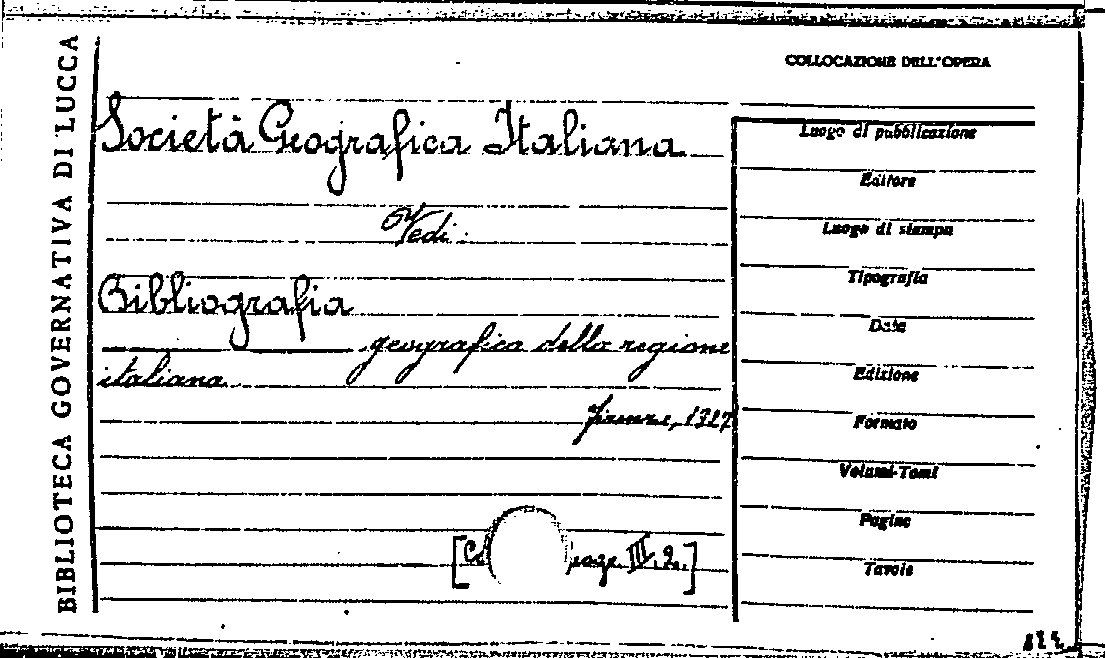 BIBLIOTECA GOVERNATIVA DI LUCCA
COLLOCAZIONE DELL'OPERA
Società Geografica Italiana
Vedi:
Bibliografia
geografica della regione
italiana
Firenze, 1927
III. 2.]
Luogo di pubblicazione
Editore
Luogo di stampa
Tipografia
Data
Edizione
Formato
Volumi-Tomi
Pagine
Tavole